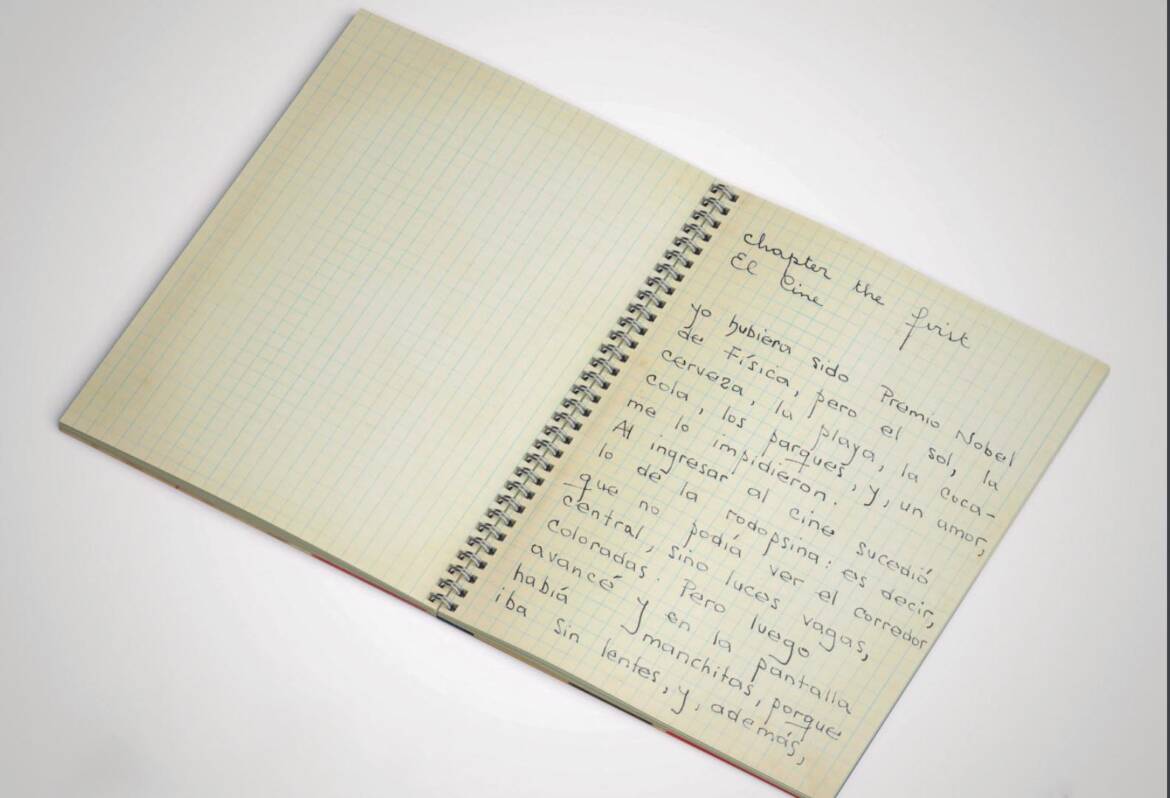 chapter the first
El Cine
yo hubiera sido Premio Nobel
de Física, pero el sol, la
cerveza, la playa, la coca-
cola, los parques, y, un amor,
me lo impidieron.
Al ingresar al cine sucedió
lo de la rodopsina: es decir,
que no podía ver el corredor
central, sino luces vagas,
coloradas. Pero luego
avancé y en la pantalla
había manchitas, porque
iba sin lentes, y, además,